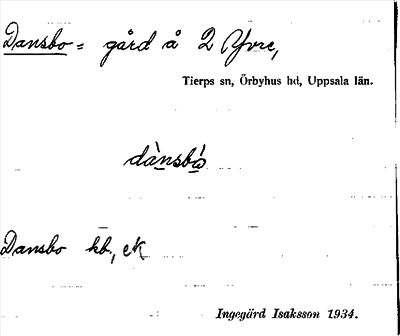 Dansbo = gård å 2 Yvre,
Tierps sn, Örbyhus hd, Uppsala län.
dànsbó
Dansbo kb., ek
Ingegärd Isaksson 1934.